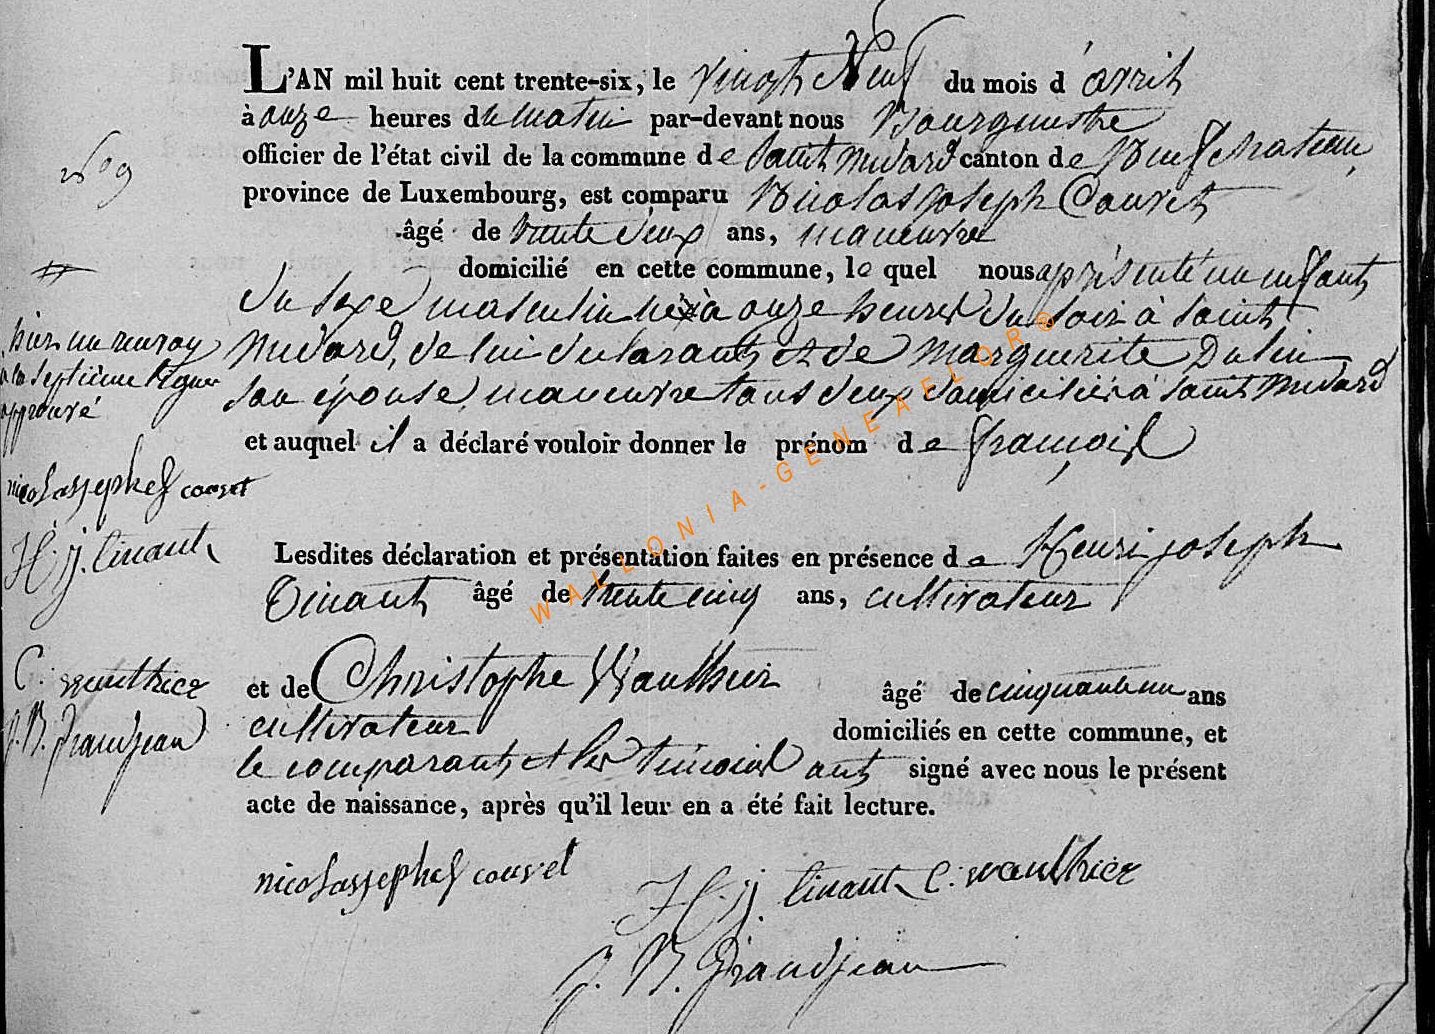 L'AN mil huit cent trente-six, le vingt Neuf du mois d'avril
à onze heures du matin par-devant nous Bourgmestre
officier de l'état civil de la commune de Saint Médard canton de Neufchateau,
province de Luxembourg, est comparu Nicolas joseph Couvet
âgé de trente deux ans, manœuvre
domicilié en cette commune, le quel nous a présenté un enfant
du sexe masculin né à onze heures du soir à Saint
Médard, de lui déclarant et de Marguerite Dulin
son épouse, manœuvre tous deux domiciliés à Saint Médard
et auquel il a déclaré vouloir donner le prénom de françois
Lesdites déclaration et présentation faites en présence de Henri joseph
Tinant âgé de trente cinq ans, cultivateur
et de Christophe Wauthier âgé de cinquante un ans
cultivateur domiciliés en cette commune, et
le comparant et les témoins ont signé avec nous le présent
acte de naissance, après qu'il leur en a été fait lecture.
nicolas jseph couvet
H. j. tinant C. wauthier
J. B. Grandjean
hier un renvoy
à la septième ligne
approuvé
nicolas jseph couvet
H. j. tinant
C. wauthier
J. B. Grandjean
WALLONIA-GENEAELOR®